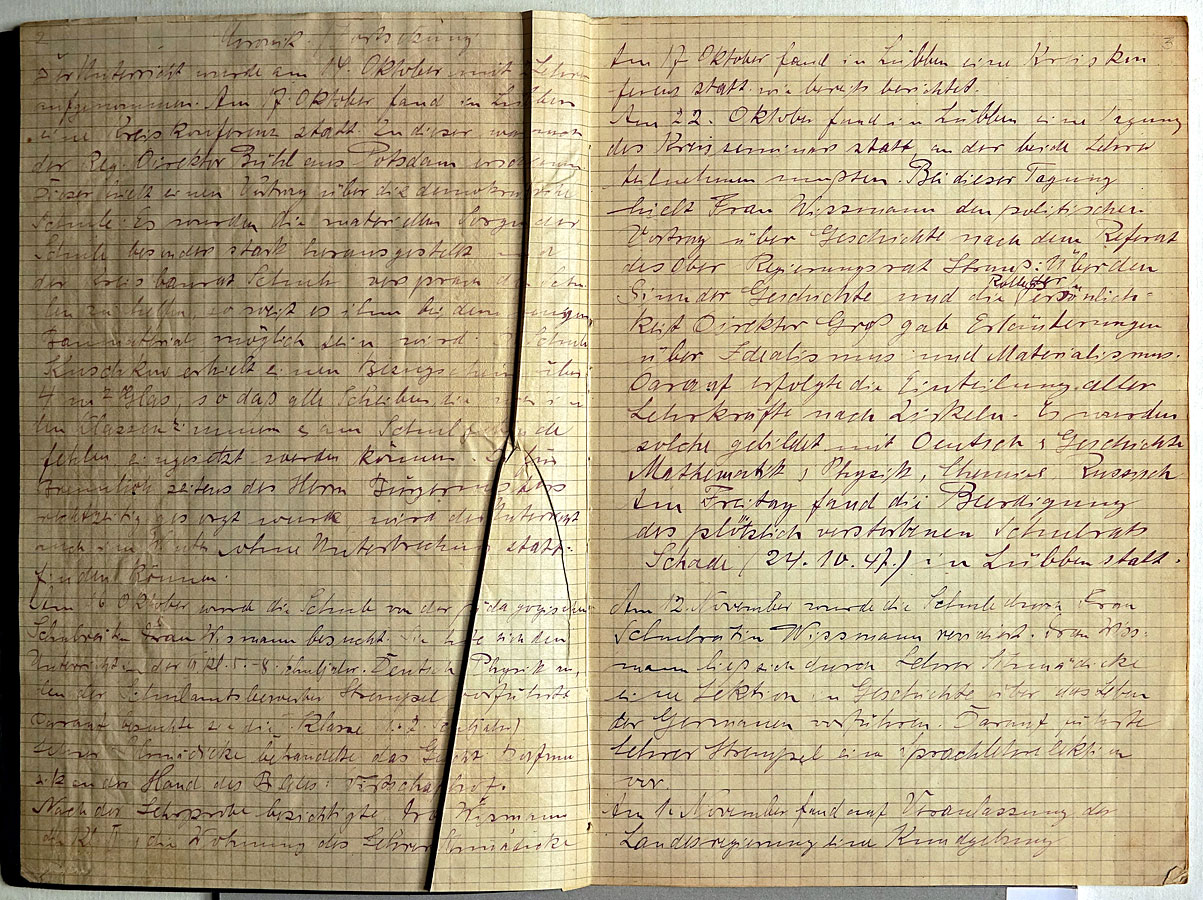 2
Chronik. Fortsetzung
Der Unterricht wurde am 14. Oktober mit Lehrer
aufgenommen. Am 17. Oktober fand in Lübben
eine Kreiskonferenz statt. Zu dieser war auch
der Reg. Direktor Bühl aus Potsdam erschienen
Dieser hielt einen Vortrag über die demokratische
Schule. Es wurden die materiellen Sorgen der
Schule besonders stark herausgestellt und
der Kreisbaurat Schulz versprach den Schu
len zu helfen, so weit es ihm bei dem
Baumaterial möglich sein wird. Schule
Kuschkow erhielt einen Bezugschein über
4 m² Glas, so daß alle Scheiben, die in
den Klassenzimmern am Schulgebäude
fehlen eingesetzt werden können. Da für
Brennholz seitens des Herrn Bürgermeisters
rechtzeitig gesorgt wurde wird der Unterricht
auch im Winter ohne Unterbrechung statt-
finden können.
Am 16 Oktober wurde die Schule von der pädagogischen
Schulrätin Frau Wismann besucht. Sie den
Unterricht in der Kl. 5.-8. Schuljahr. Deutsch Physik
den der Schulamtsbewerber Strempel vorführte
Darauf besuchte sie die Klasse
Lehrer Schmädicke behandelte das
an der Hand des Bildes:
Nach der Lehrprobe besichtigte Frau Wismann
die Wohnung des Lehrer Schmädicke
3
Am 17 Oktober fand in Lübben eine Kreiskon
ferenz statt wie bereits berichtet.
Am 22. Oktober fand in Lübben eine Tagung
des Kreisseminars statt an der beide Lehrer
teilnehmen mußten. Bei dieser Tagung
hielt Frau Wissmann den politischen
Vortrag über Geschichte nach dem Referat
des Ober Regierungsrat Straus: Über den
Sinn der Geschichte und die Persönlich-
keit Direktor Groß gab Erläuterungen
über Idealismus und Materialismus.
Darauf erfolgte die Einteilung aller
Lehrkräfte nach Zirkeln. Es wurden
solche gebildet mit Deutsch, Geschichte
Mathematik, Physik, Chemie, Russisch
Am Freitag fand die Beerdigung
des plötzlich verstorbenen Schulrats
Schade (24.10.47.) in Lübben statt.
Am 12. November wurde die Schule durch Frau
Schulrätin Wissmann revidiert. Frau Wiss-
mann ließ sich durch Lehrer Schmädicke
eine Lektion in Geschichte über das Leben
der Germanen vorführen. Darauf führte
Lehrer Strempel eine Sprachlehrlektion
vor.
Am 1. November fand auf Veranlassung der
Landesregierung eine Kundgebung